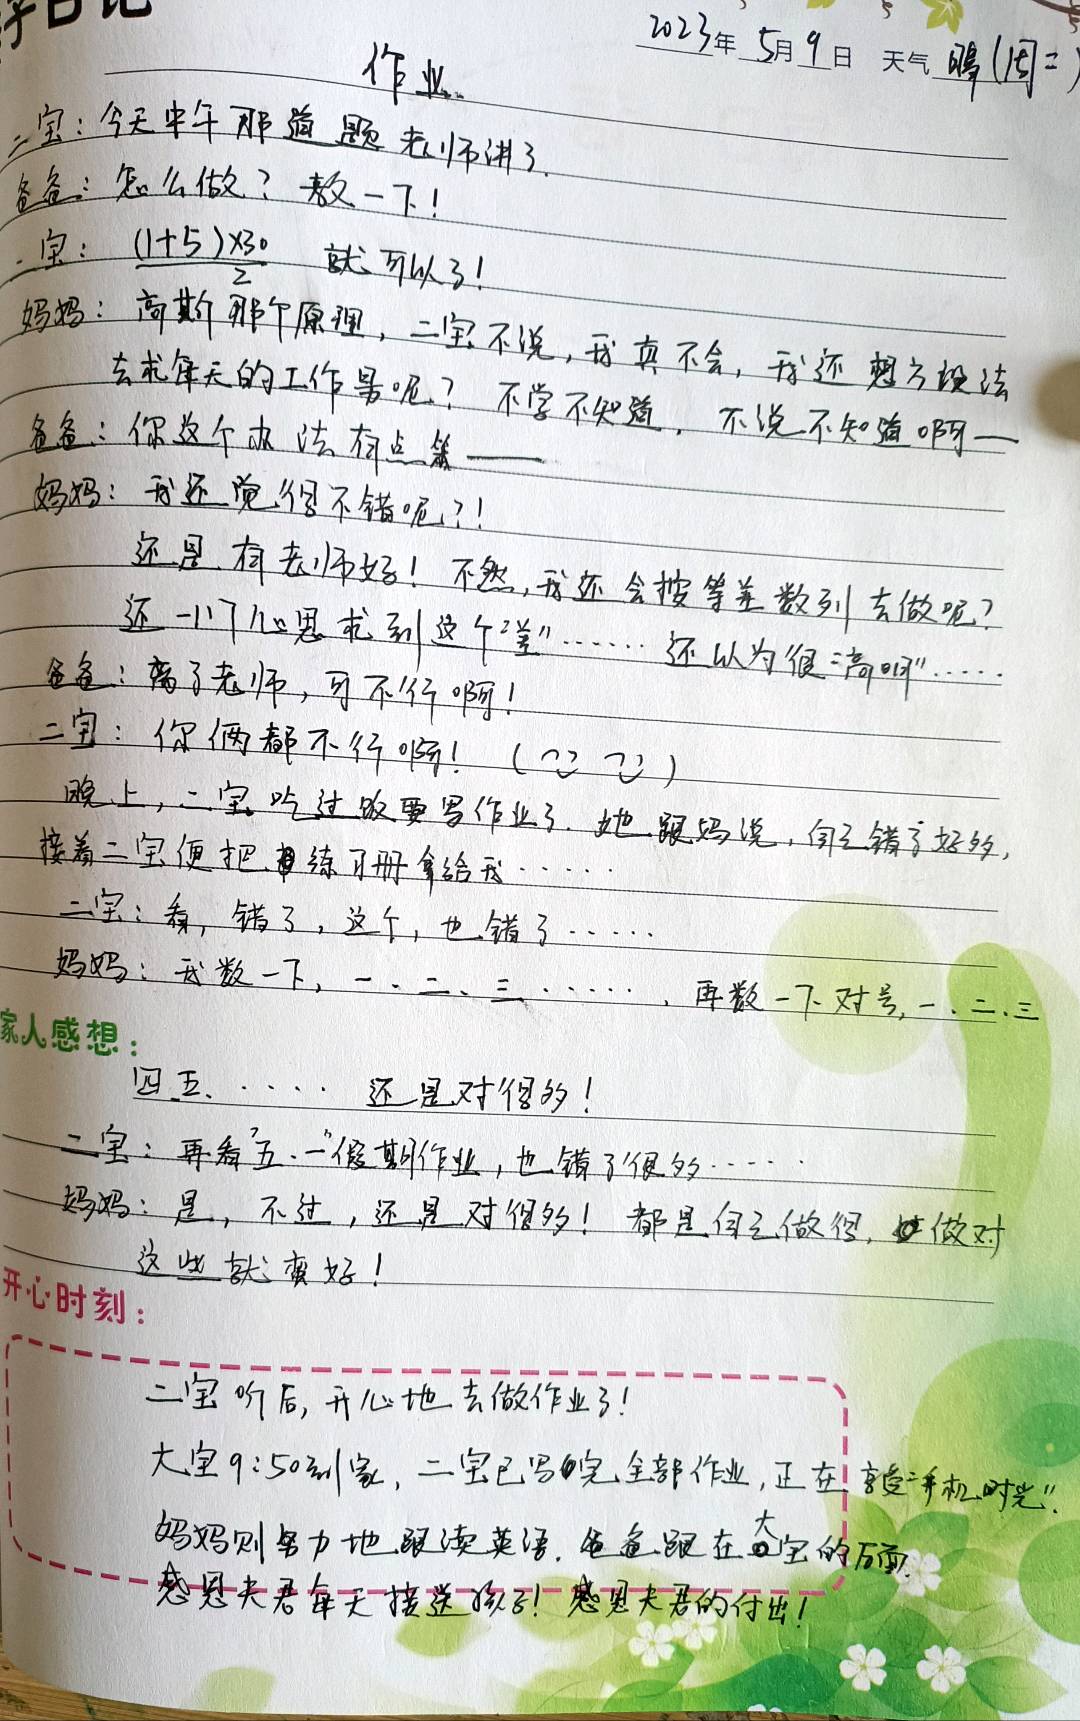 日记
2023年5月9日 天气 晴(周二)
作业
二宝：今天中午那道题老师讲了.
爸爸：怎么做？教一下！
二宝：(1+5)×30/2 就可以了！
妈妈：高斯那个原理，二宝不说，我真不会，我还想方设法
去求每天的工作量呢？不学不知道，不说不知道啊——
爸爸：你这个办法有点笨——
妈妈：我还觉得不错呢？！
还是有老师好！不然，我还会按等差数列去做呢？
还一门心思求到这个"差"…… 还以为很"高明"……
爸爸：离了老师，可不行啊！
二宝：你俩都不行啊！( )
晚上，二宝吃过饭要写作业了.她跟妈说，自己错了好多，
接着二宝便把练习册拿给我……
二宝：看，错了，这个，也错了……
妈妈：我数一下，一、二、三……，再数一下对号，一、二、三
家人感想：
四、五、…… 还是对得多！
二宝：再看"五·一"假期作业，也错了很多……
妈妈：是，不过，还是对得多！都是自己做得，做对
这些就蛮好！
开心时刻：
二宝听后，开心地去做作业了！
大宝9:50到家，二宝已写完全部作业，正在享受"手机时光".
妈妈则努力地跟读英语.爸爸跟在大宝的后面.
感恩夫君每天接送孩子！感恩夫君的付出！